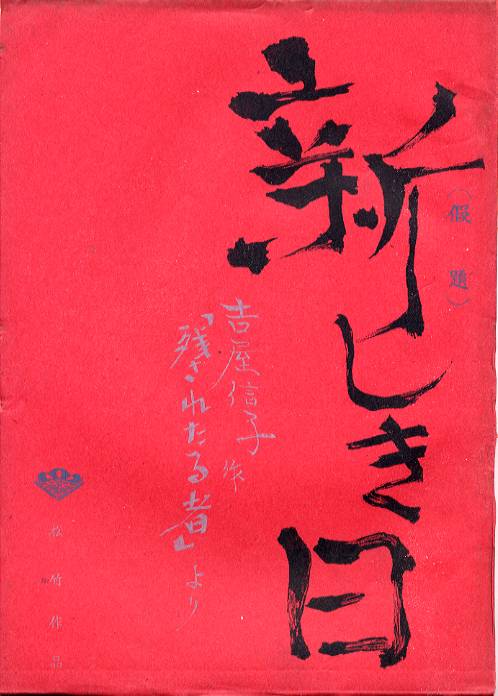 新しき日
（假題）
吉屋信子作
「残されたる者」より
松竹作品